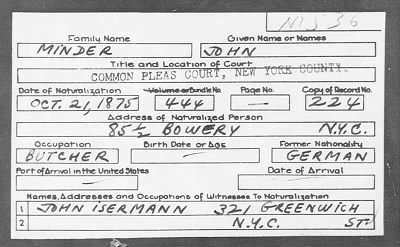 M536
Family Name Given Name or Names
MINDER JOHN
Title and Location of Court
COMMON PLEAS COURT, NEW YORK COUNTY.
Date of Naturalization Volume or Bundle No. Page No. Copy of Record No.
OCT. 21, 1875 444 — 224
Address of Naturalized Person
85½ BOWERY N.Y.C.
Occupation Birth Date or Age Former Nationality
BUTCHER GERMAN
Port of Arrival in the United States Date of Arrival
Names, Addresses and Occupations of Witnesses To Naturalization
1 JOHN ISERMANN 321 GREENWICH
2 N.Y.C. ST.